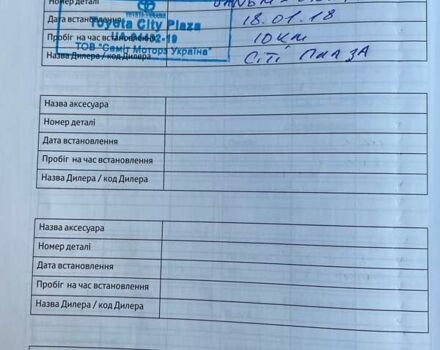 Номер деталі
Дата встановлення 18.01.18
Пробіг на час встановлення 10 км
Назва Дилера / код Дилера Сіті Плаза
TOYOTA-UKRAINE
Toyota City Plaza
UA-04492-19
ТОВ "Саміт Моторз Україна"
Назва аксесуара
Номер деталі
Дата встановлення
Пробіг на час встановлення
Назва Дилера / код Дилера
Назва аксесуара
Номер деталі
Дата встановлення
Пробіг на час встановлення
Назва Дилера / код Дилера